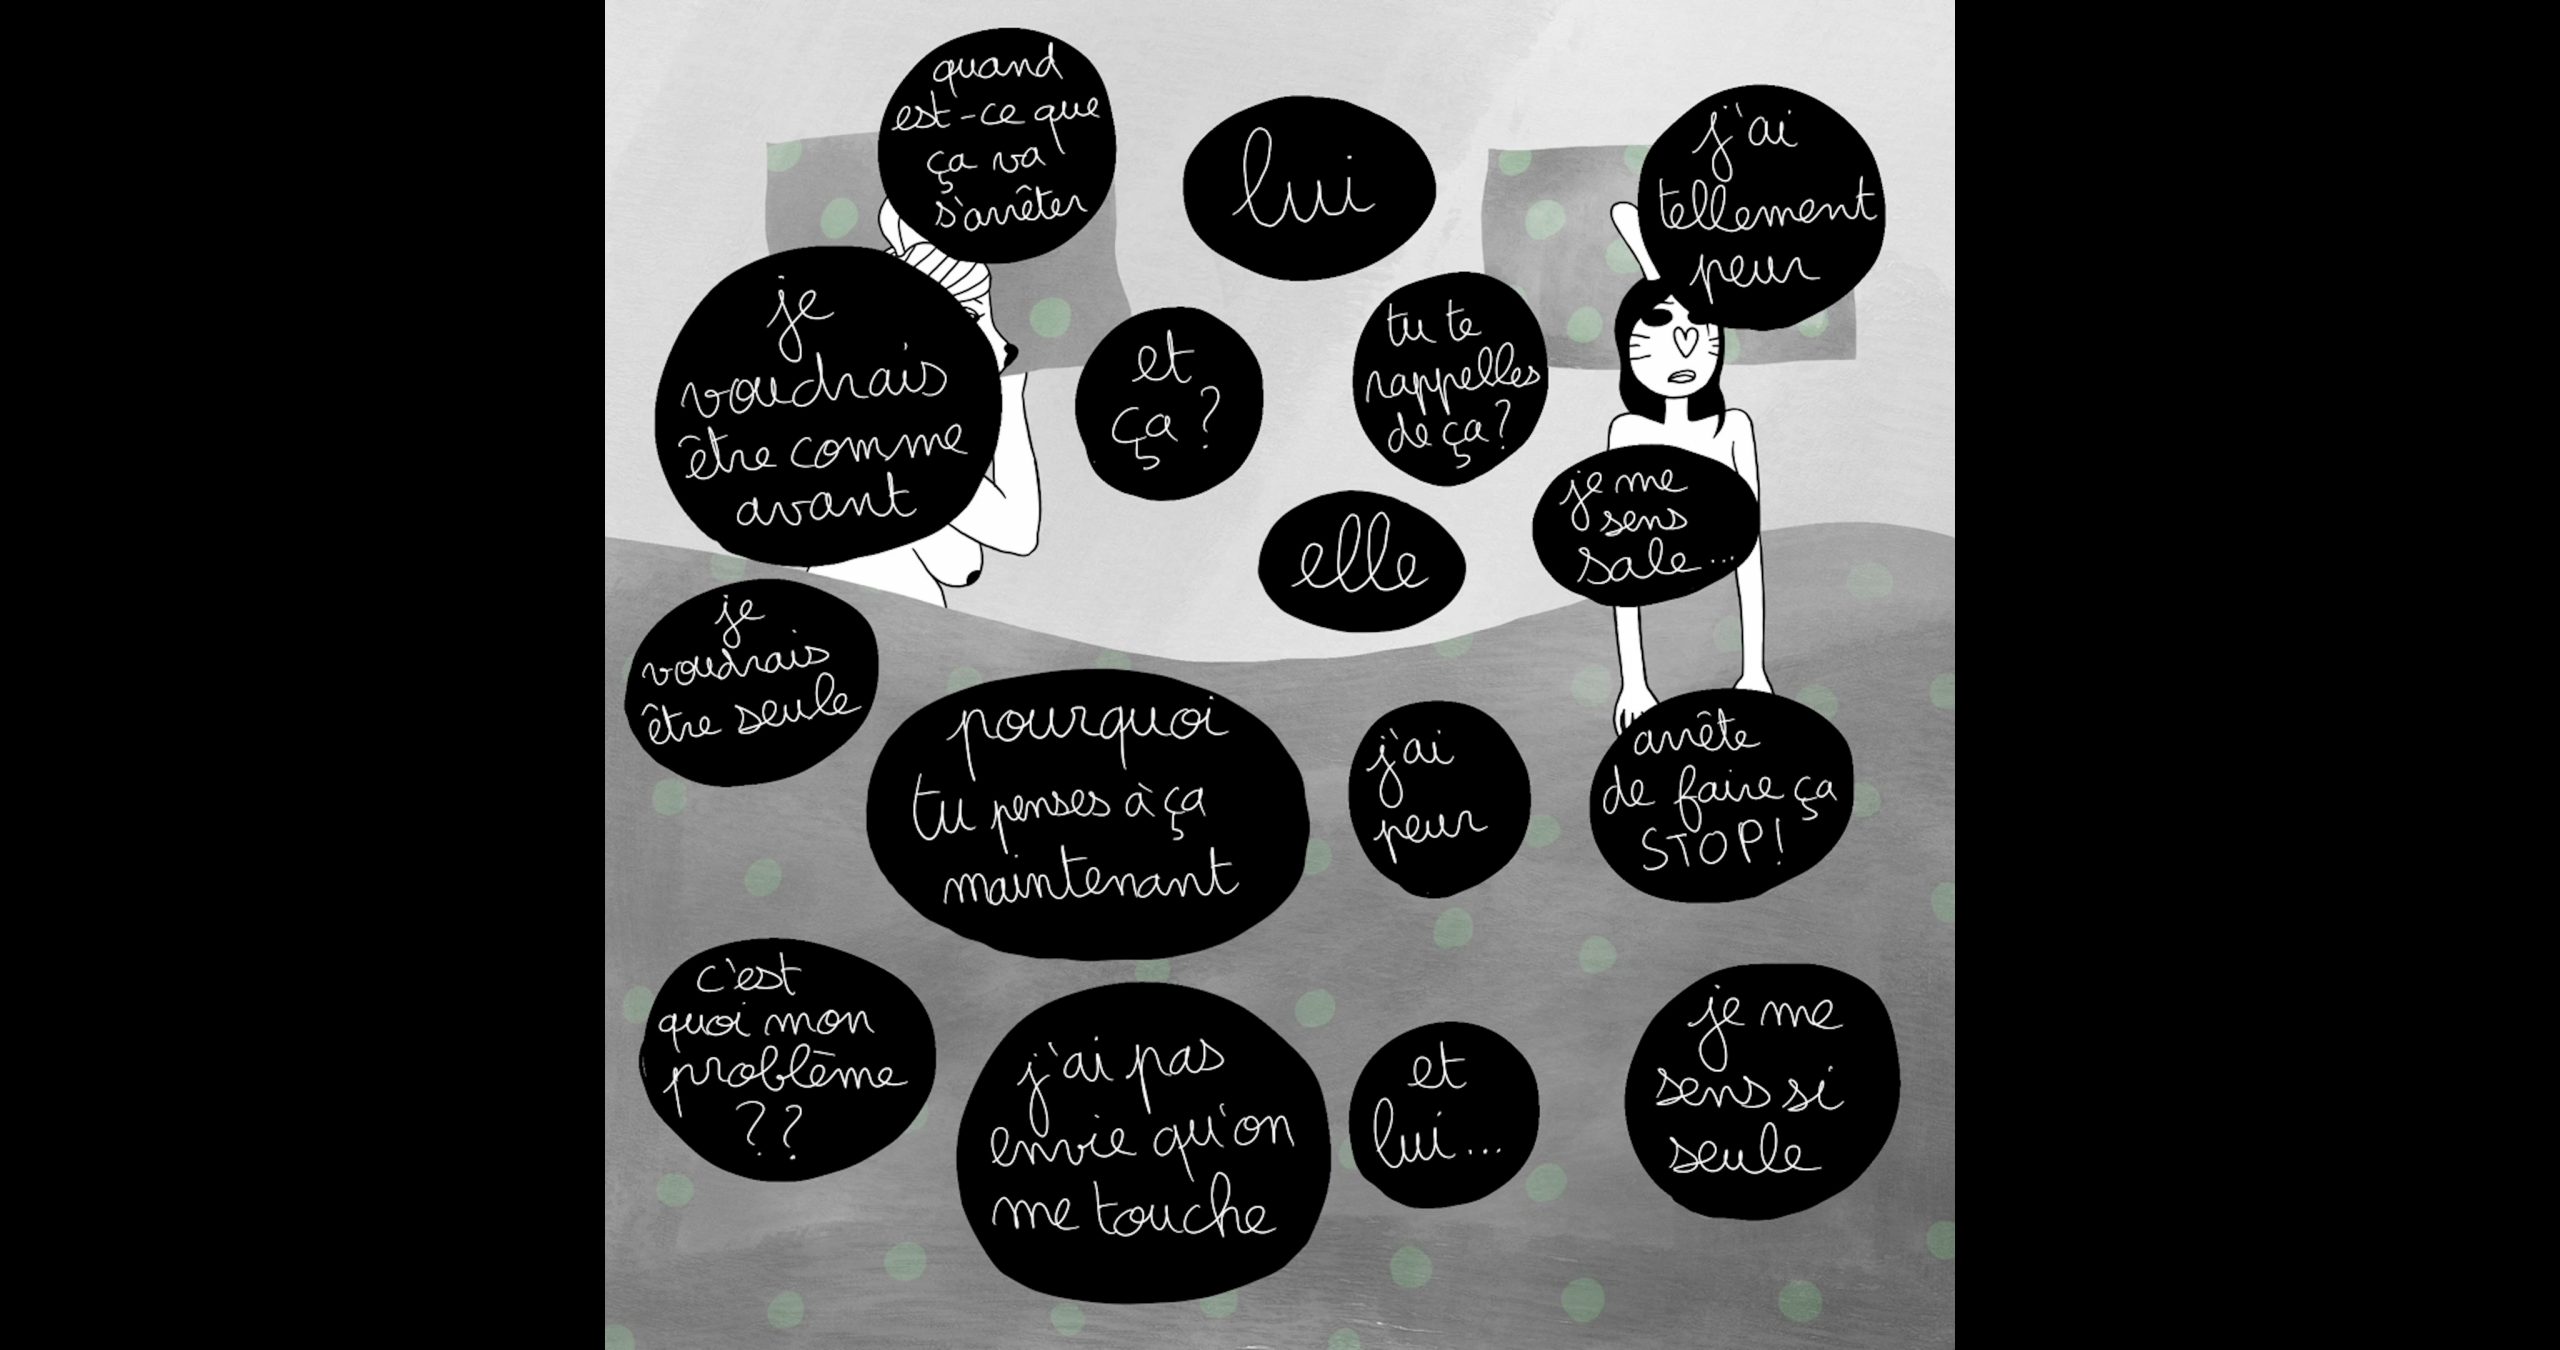 quand
est-ce que
ça va
s'arrêter
lui
j'ai
tellement
peur
je
voudrais
être comme
avant
et
ça ?
tu te
rappelles
de ça ?
je me
sens
sale...
elle
je
voudrais
être seule
pourquoi
tu penses à ça
maintenant
j'ai
peur
arrête
de faire ça
STOP !
c'est
quoi mon
problème
??
j'ai pas
envie qu'on
me touche
et
lui...
je me
sens si
seule